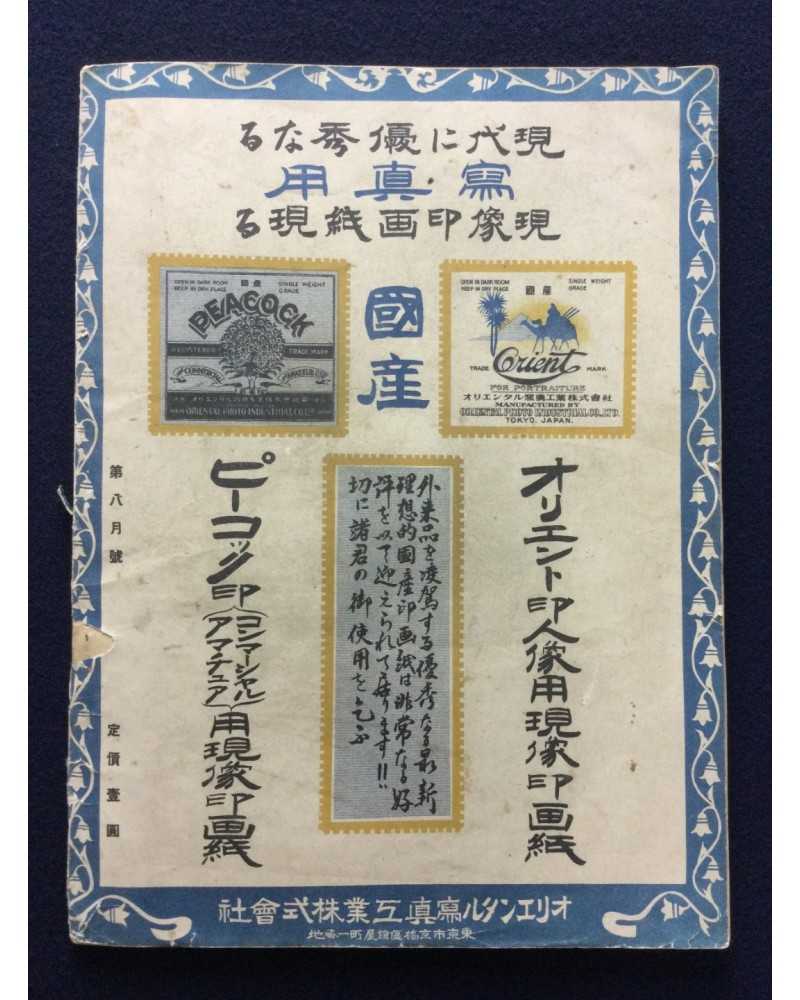 現代に優秀なる
寫真用
現像印画紙現る
國産
OPEN IN DARK ROOM
KEEP IN DRY PLACE
國産
SINGLE WEIGHT
GRADE
TRADE
Orient
MARK
FOR PORTRAITURE
オリエンタル寫眞工業株式會社
MANUFACTURED BY
ORIENTAL PHOTO INDUSTRIAL CO. LTD.
TOKYO, JAPAN.
OPEN IN DARK ROOM
KEEP IN DRY PLACE
國産
SINGLE WEIGHT
GRADE
PEACOCK
REGISTERED
TRADE MARK
ORIENTAL PHOTO INDUSTRIAL CO. LTD.
オリエント印人像用現像印画紙
外来品を凌駕する優秀なる最新
理想的國産印画紙は非常なる好
評を以て迎えられて居ります!!
切に諸君の御使用を乞ふ
ピーコック印(コンマーシャル アマチュア)用現像印画紙
第八月號
定價壹圓
オリエンタル寫真工業株式會社
東京市京橋區鎗屋町一番地